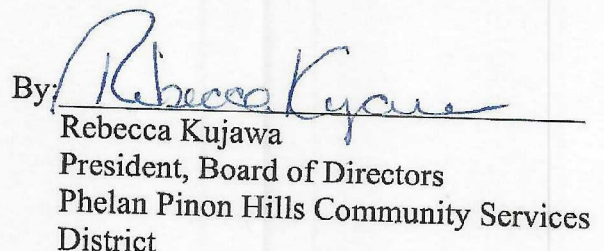 By: Rebecca Kujawa
Rebecca Kujawa
President, Board of Directors
Phelan Pinon Hills Community Services
District